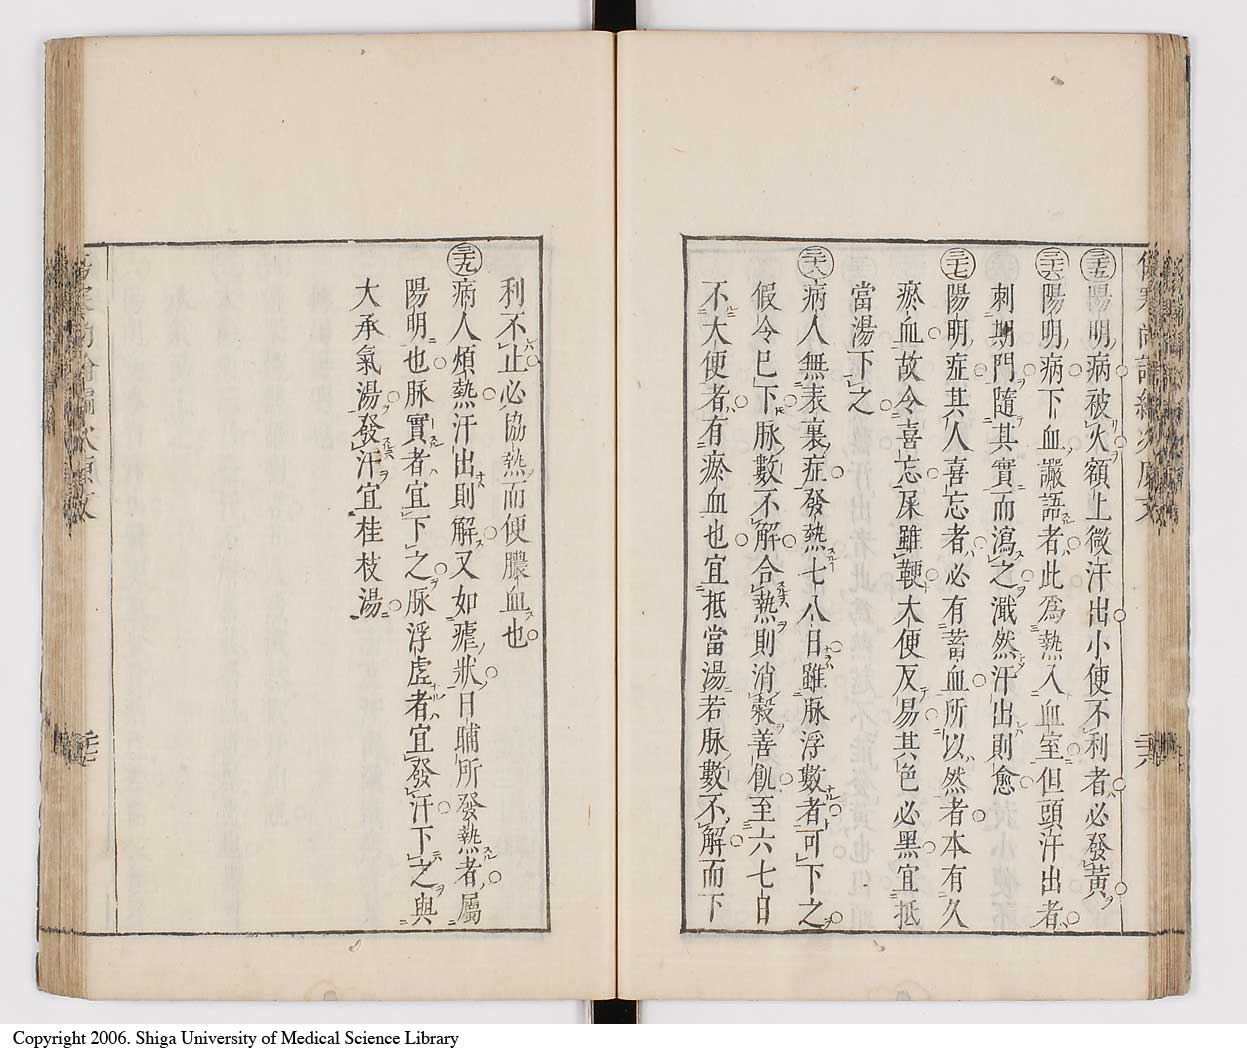 三十五 陽明病被火額上微汗出小便不利者必發黃
三十六 陽明病下血讝語者此爲熱入血室但頭汗出者
刺期門隨其實而瀉之濈然汗出則愈
三十七 陽明症其人喜忘者必有蓄血所以然者本有久
瘀血故令喜忘屎雖鞕大便反易其色必黑宜抵
當湯下之
三十八 病人無表裏症發熱七八日雖脉浮數者可下之
假令已下脉數不解合熱則消穀善飢至六七日
不大便者有瘀血也宜抵當湯若脉數不解而下
利不止必協熱而便膿血也
三十九 病人煩熱汗出則解又如瘧狀日晡所發熱者屬
陽明也脉實者宜下之脉浮虛者宜發汗下之與
大承氣湯發汗宜桂枝湯
Copyright 2006. Shiga University of Medical Science Library